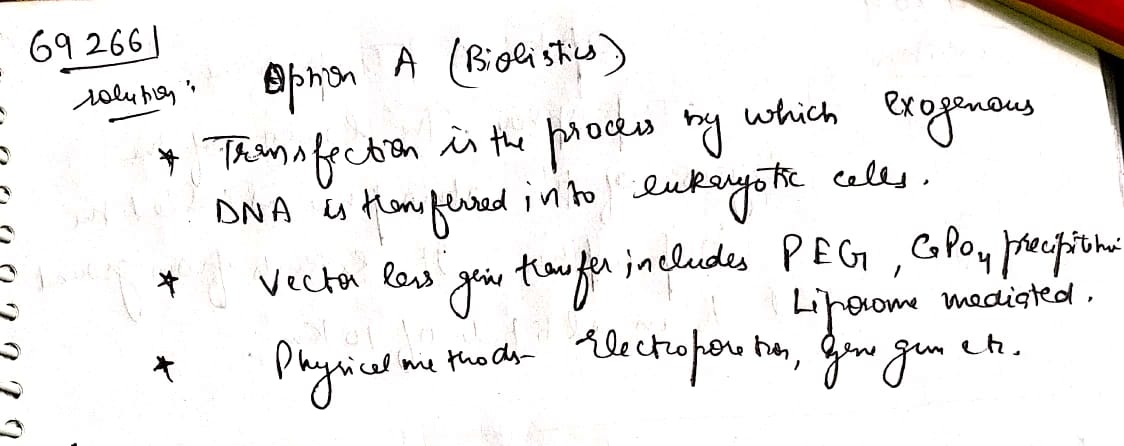 692661
solution:
Option A (Biolistics)
* Transfection is the process by which exogenous
DNA is transferred into eukaryotic cells.
* Vector less gene transfer includes PEG, CaPO4 precipitation
Liposome mediated.
* Physical methods- Electroporation, gene gun etc.